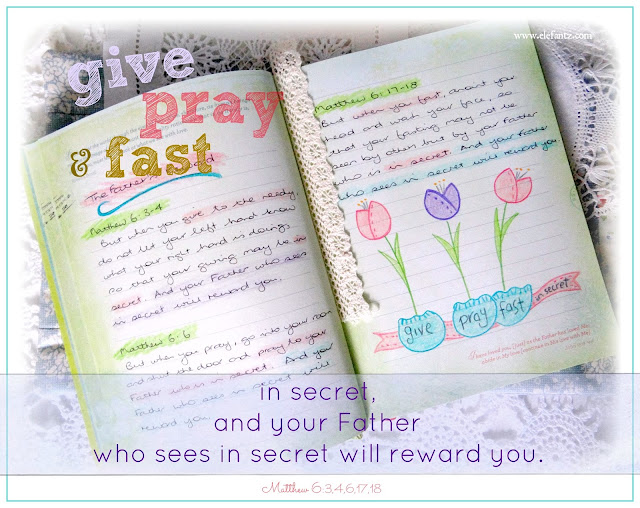 www.elefantz.com
give
pray
& fast
The Father's
Matthew 6:3-4
But when you give to the needy,
do not let your left hand know
what your right hand is doing
so that your giving may be in
secret. And your Father who sees
in secret will reward you.
Matthew 6:6
But when you pray, go into your room
and shut the door and pray to your
Father who is in secret. And your
Father who sees in secret will
reward you
Matthew 6:17-18
But when you fast, anoint your
head and wash your face, so
that your fasting may not be
seen by others but by your Father
who is in secret. And your Father
who sees in secret will reward you
give
pray
fast
in secret
in secret,
and your Father
who sees in secret will reward you.
Matthew 6:3,4,6,17,18